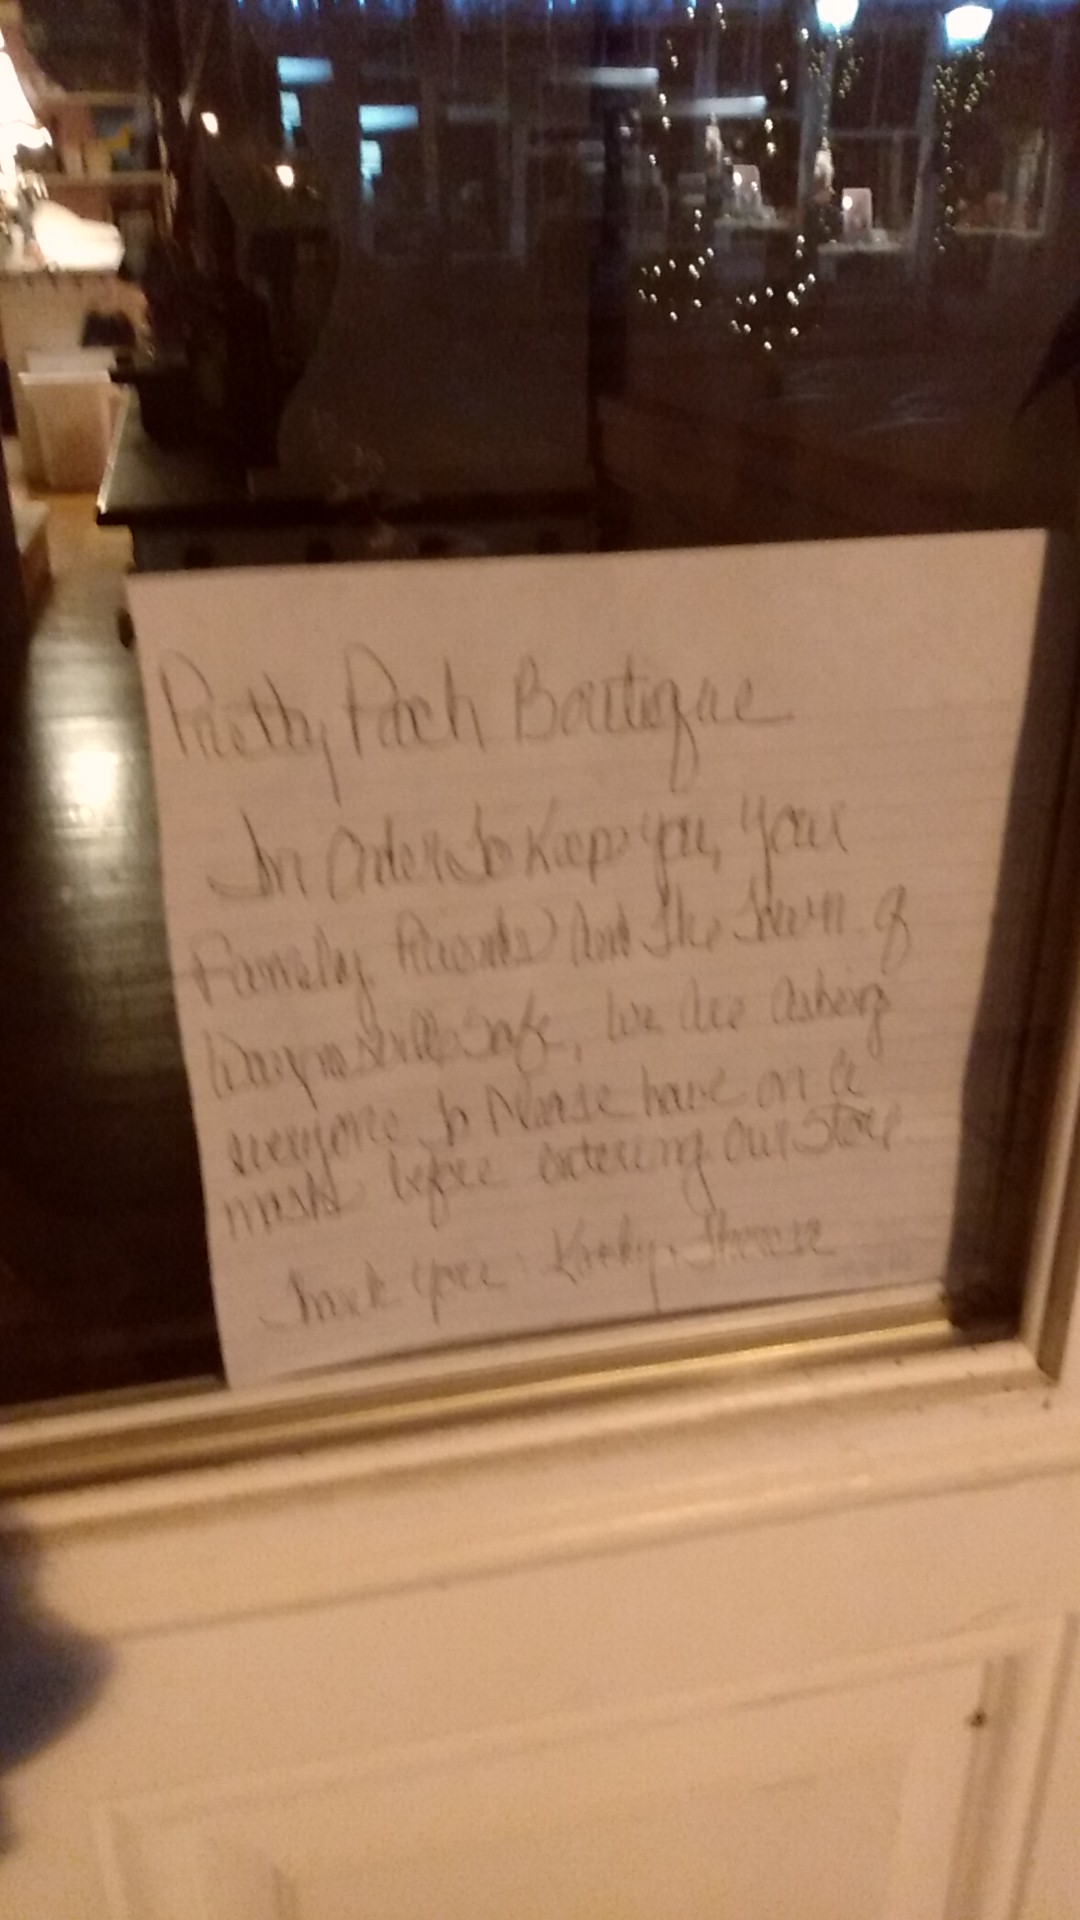 Pretty Patch Boutique
In Order To Keep you, your
Family, Friends and The Town of
Waynesville Safe, We Are asking
everyone to Please have on a
mask before entering our Store
Thank you Kathy, Therese